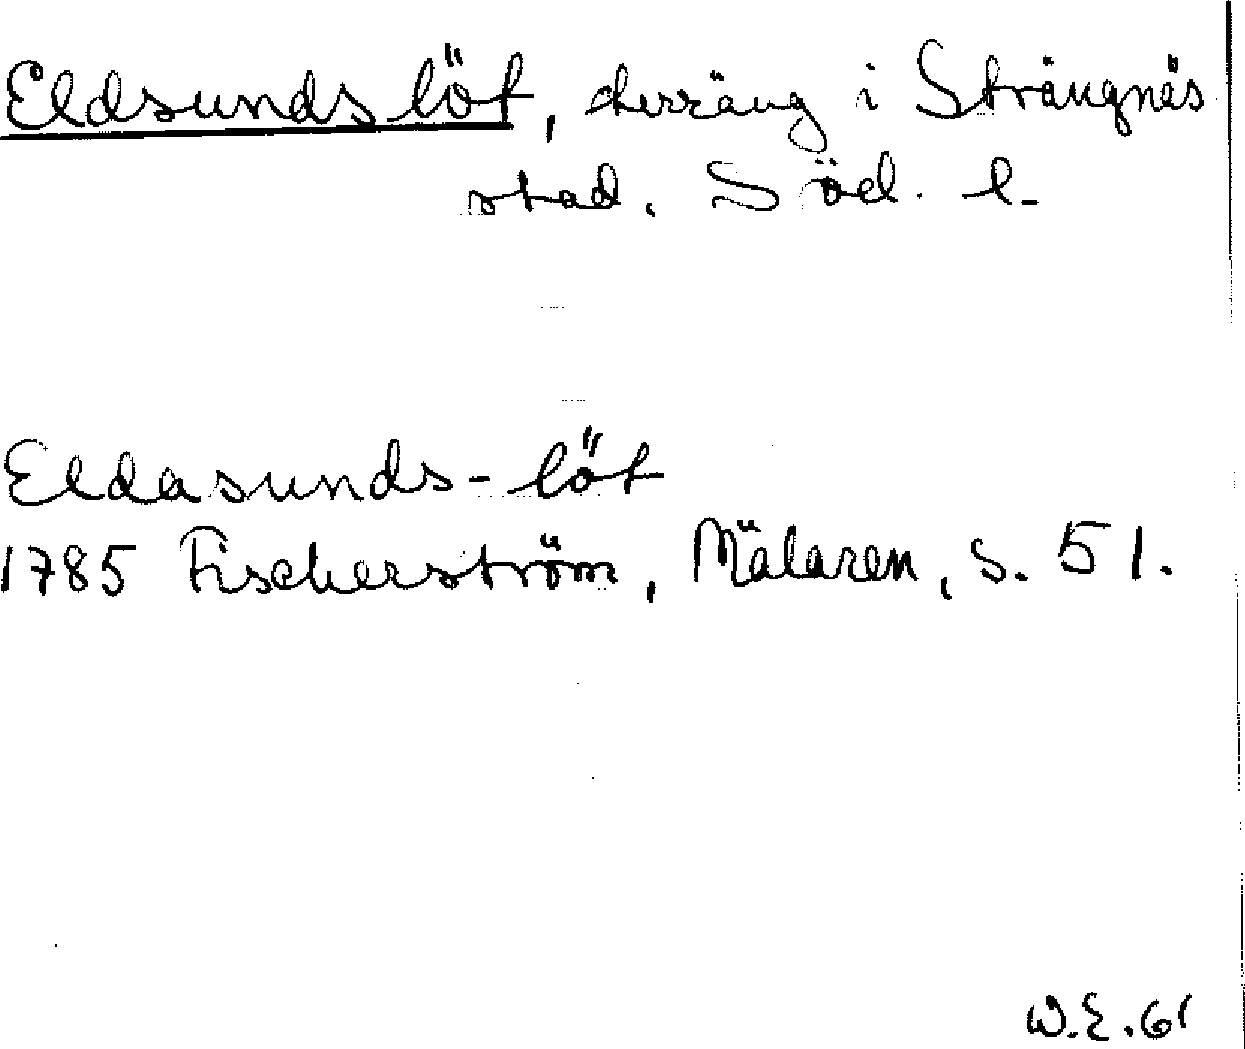 Eldsundslöt, i Strängnäs
stad. Söd. l.
Eldasunds-löt
1785 Fischerström, Mälaren, s. 51.
W.E. 61